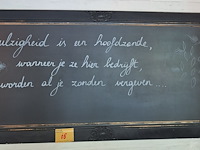 ulzigheid is een hoofdzonde,
wanneer je ze hier bedrijft,
worden al je zonden vergeven ....
16